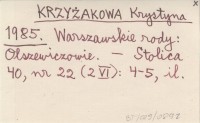 KRZYŻAKOWA Krystyna
1985. Warszawskie rody:
Olszewiczowie. — Stolica
40, nr 22 (2 VI): 4-5, il.